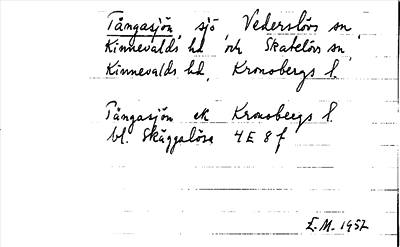 Tångasjön, sjö, Vederslövs sn,
Kinnevalds hd och Skatelövs sn,
Kinnevalds hd, Kronobergs l.
Tångasjön ek Kronobergs l.
bl. Skäggalösa 4E 8f
E.M. 1957